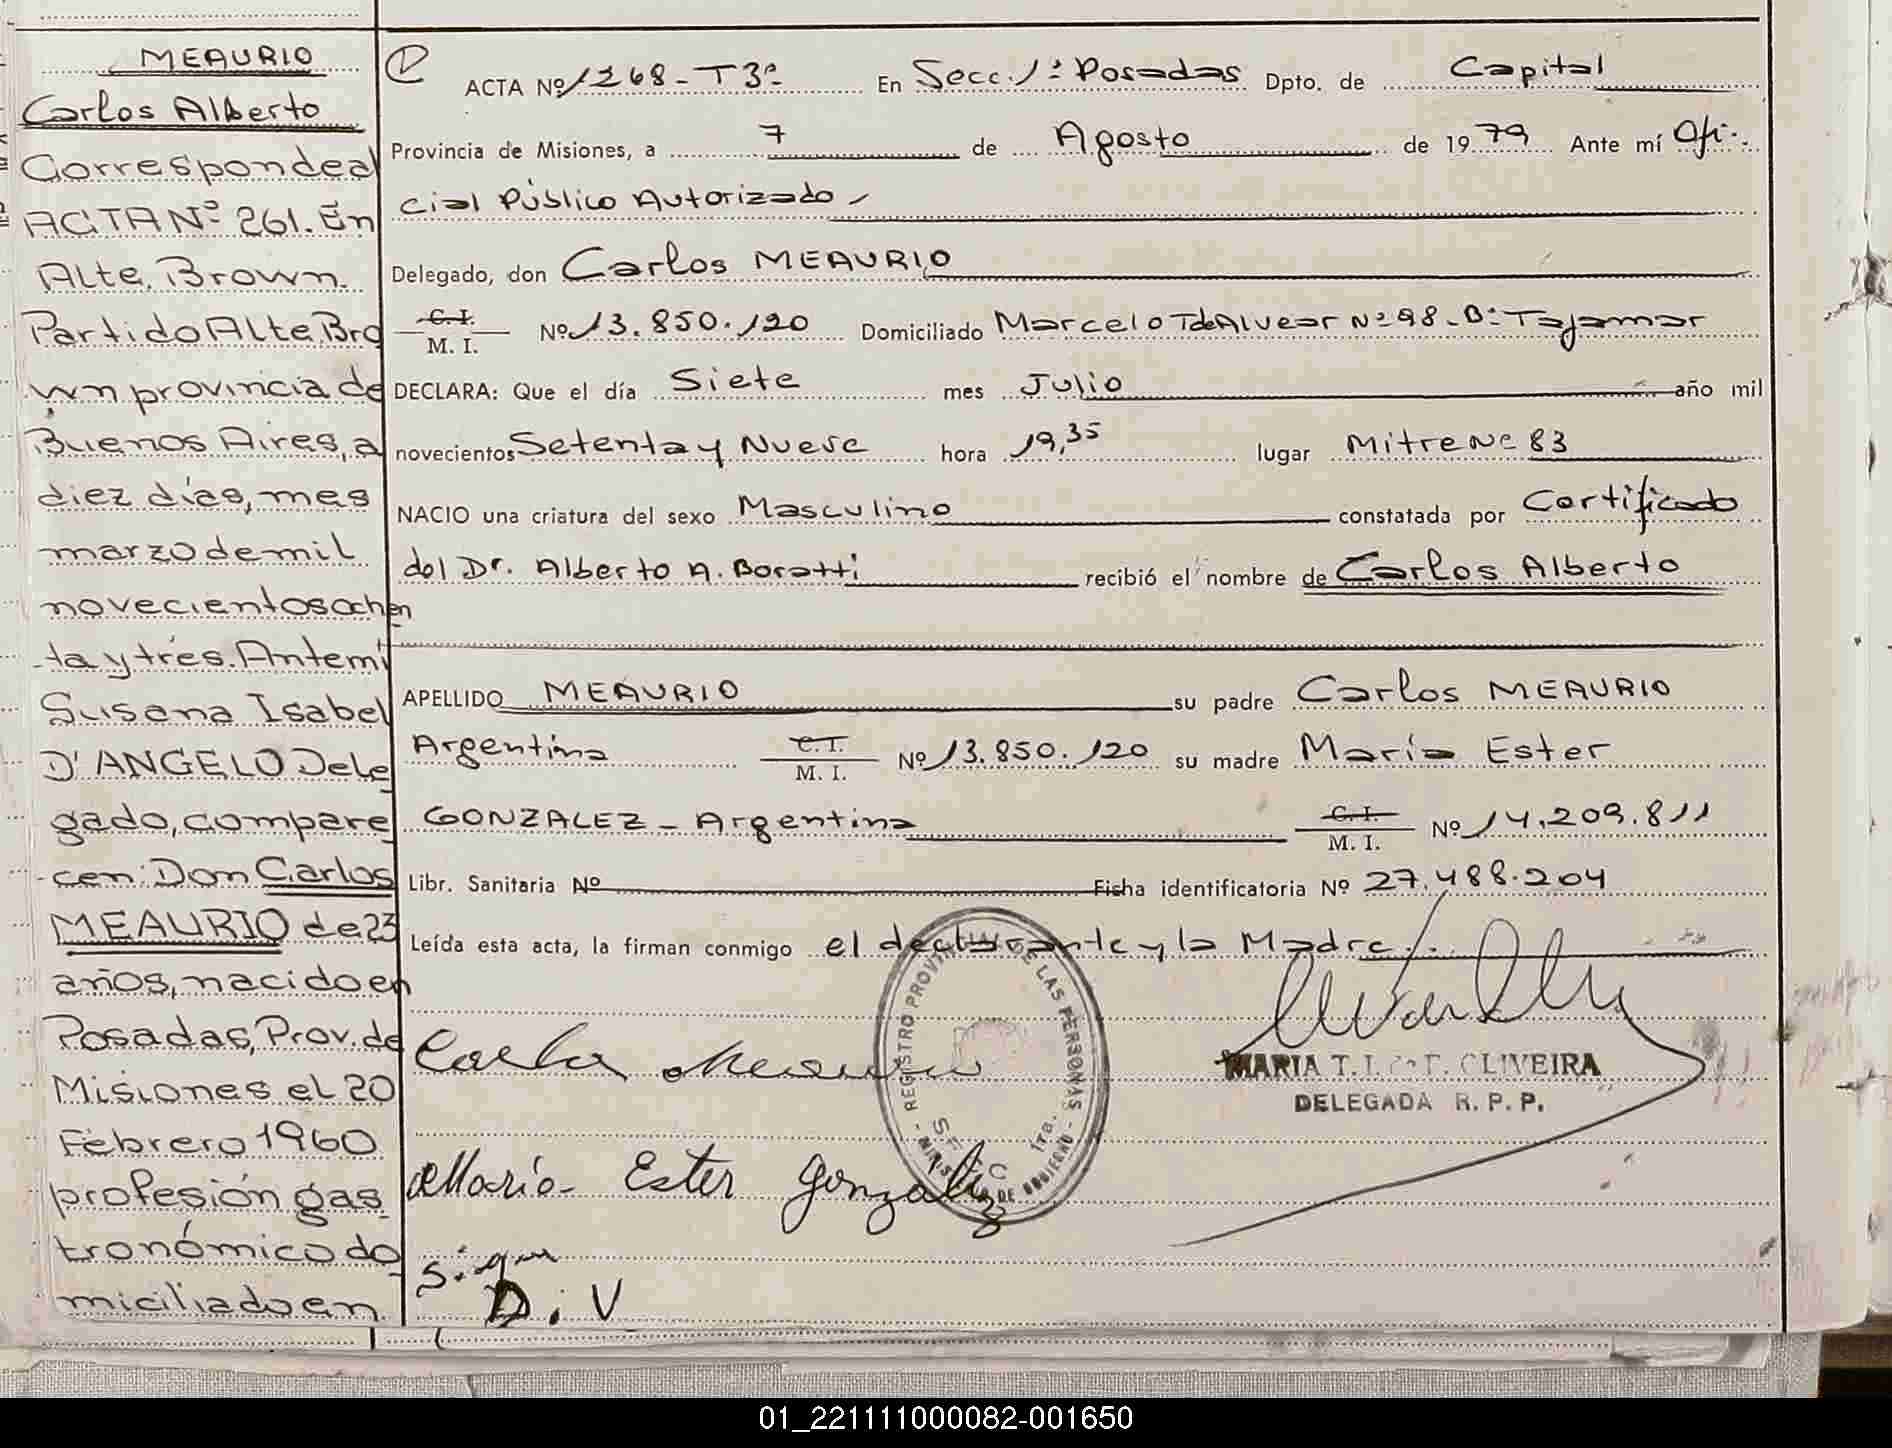 MEAURIO
Carlos Alberto
Corresponde al
ACTA Nº 261. En
Alte. Brown.
Partido Alte. Bro
wn provincia de
Buenos Aires, a
diez días, mes
marzo de mil
novecientos ochen
ta y tres. Ante mi
Susana Isabel
D'ANGELO Dele
gado, compare
cen: Don Carlos
MEAURIO de 23
años, nacido en
Posadas, Prov. de
Misiones el 20
Febrero 1960
profesión gas
tronómico do
miciliado en
ACTA Nº 1268 - T3º En Secc. 1ª Posadas Dpto. de Capital
Provincia de Misiones, a 7 de Agosto de 1979 Ante mí Ofi-
cial Público Autorizado
Delegado, don Carlos MEAURIO
C. I.
M. I. Nº 13.850.120 Domiciliado Marcelo T de Alvear Nº 98 - Bº Tajamar
DECLARA: Que el día Siete mes Julio año mil
novecientos Setenta y Nueve hora 19,35 lugar Mitre Nº 83
NACIO una criatura del sexo Masculino constatada por Certificado
del Dr. Alberto A. Boratti recibió el nombre de Carlos Alberto
APELLIDO MEAURIO su padre Carlos MEAURIO
Argentina C. I. M. I. Nº 13.850.120 su madre María Ester
GONZALEZ - Argentina C. I. M. I. Nº 14.209.811
Libr. Sanitaria Nº Ficha identificatoria Nº 27.488.204
Leída esta acta, la firman conmigo el declarante y la Madre.
Carlos Meaurio
REGISTRO PROVINCIAL DE LAS PERSONAS
1ra.
MINISTERIO DE GOBIERNO
MARIA T. OLIVEIRA
DELEGADA R. P. P.
María Ester Gonzalez
Sigue
D. V
01_221111000082-001650